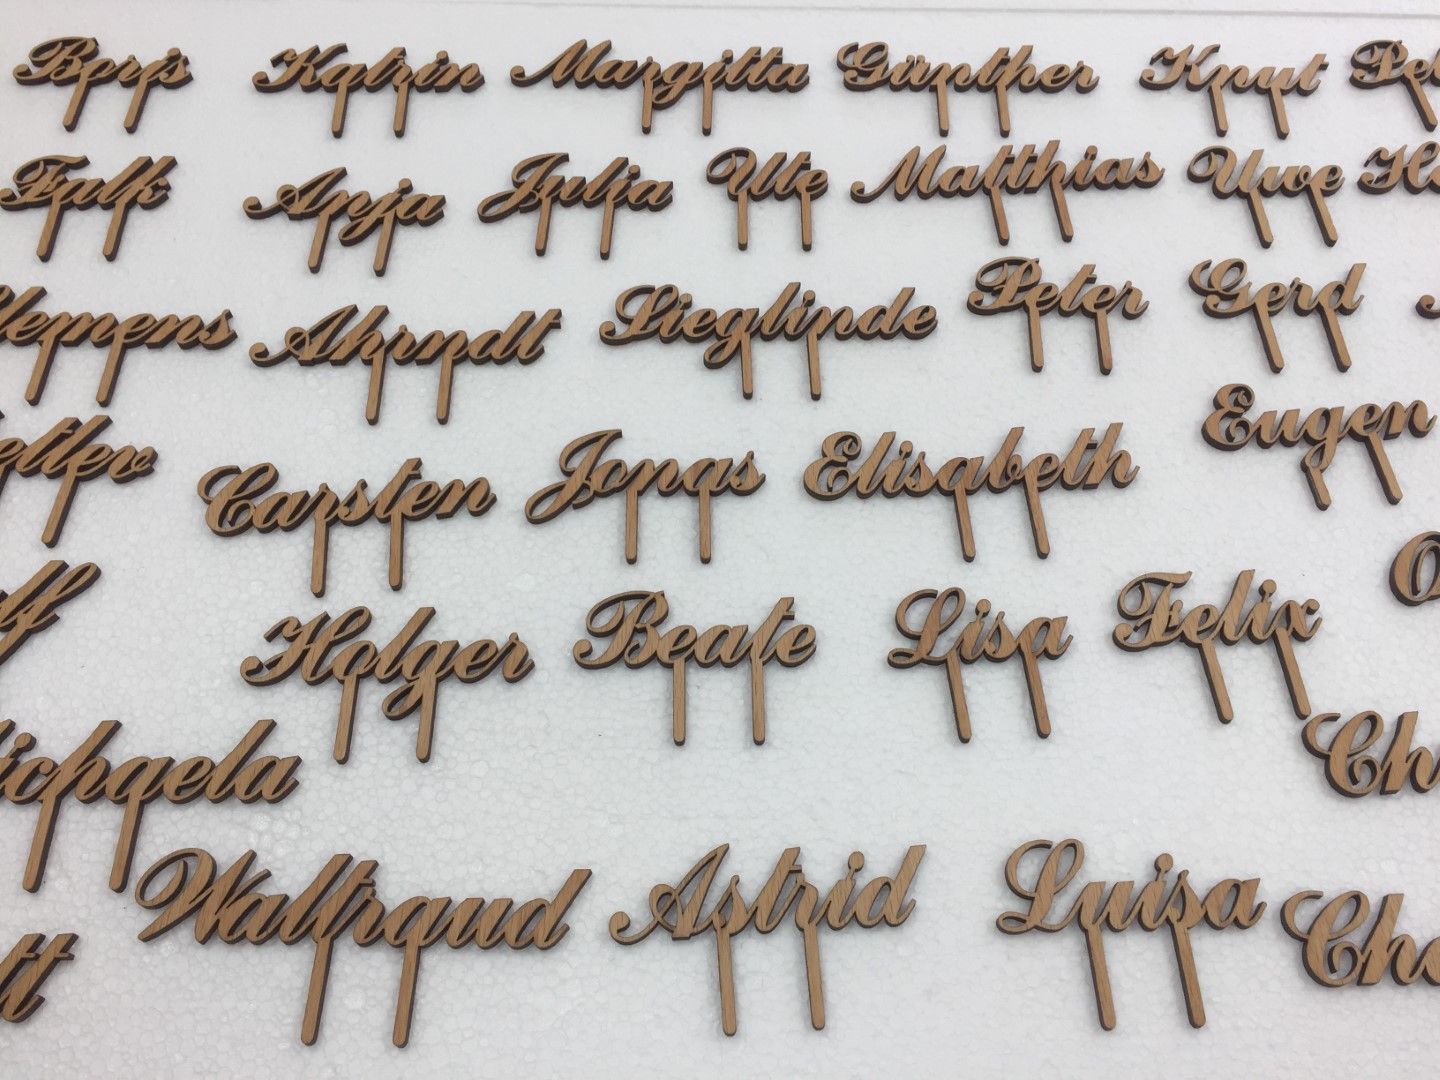 Boris Katrin Margitta Günther Knut Pet
Falk Anja Julia Ute Matthias Uwe
lemens Ahrndt Sieglinde Peter Gerd
etlev Carsten Jonas Elisabeth Eugen
lf Holger Beate Lisa Felix
ichaela Ch
tt Waltraud Astrid Luisa Ch